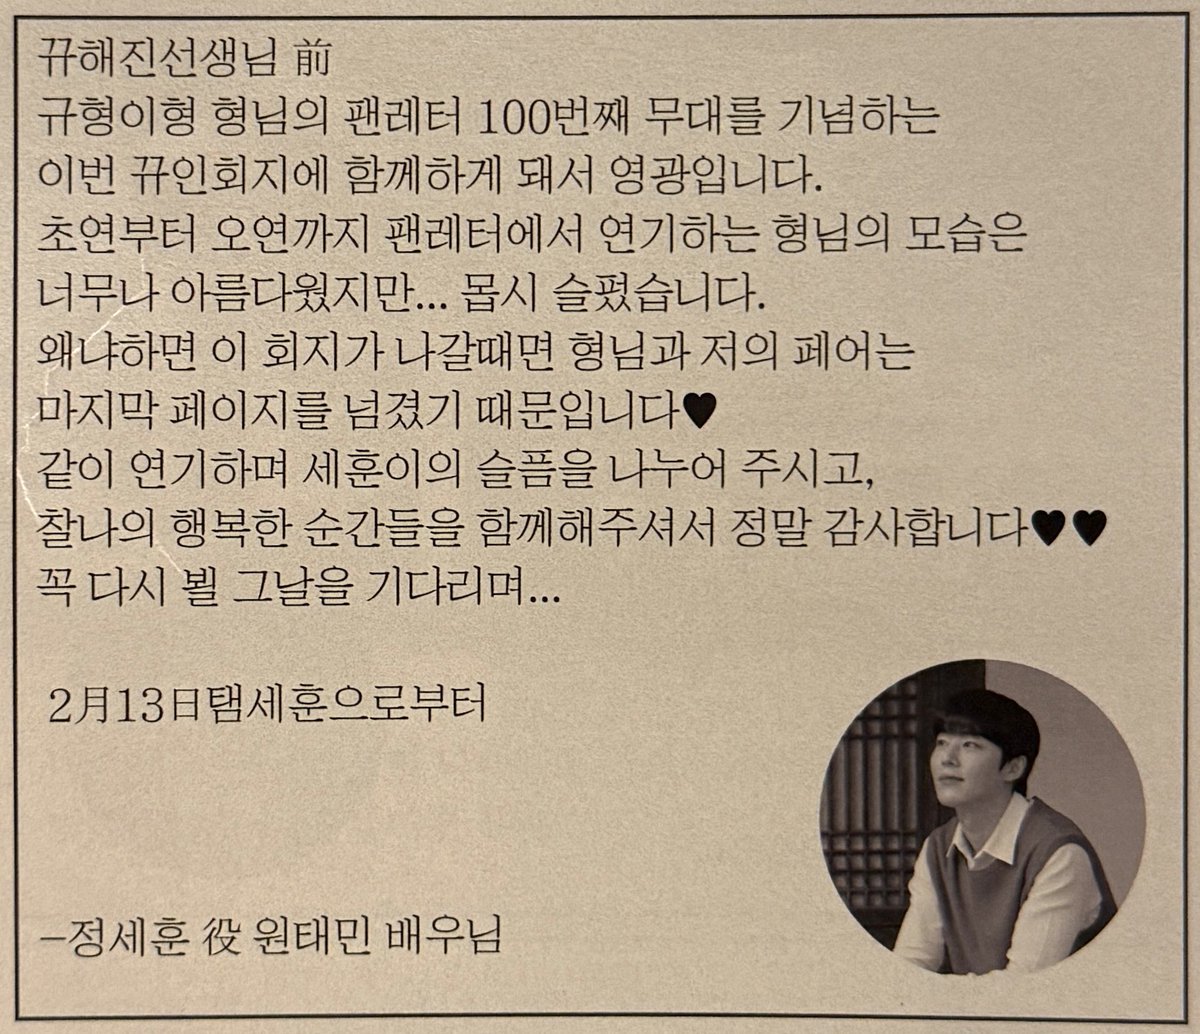 뀨해진선생님 前
규형이형 형님의 팬레터 100번째 무대를 기념하는
이번 뀨인회지에 함께하게 돼서 영광입니다.
초연부터 오연까지 팬레터에서 연기하는 형님의 모습은
너무나 아름다웠지만... 몹시 슬펐습니다.
왜냐하면 이 회지가 나갈때면 형님과 저의 페어는
마지막 페이지를 넘겼기 때문입니다♥
같이 연기하며 세훈이의 슬픔을 나누어 주시고,
찰나의 행복한 순간들을 함께해주셔서 정말 감사합니다♥♥
꼭 다시 뵐 그날을 기다리며...
2月13日탬세훈으로부터
–정세훈 役 원태민 배우님